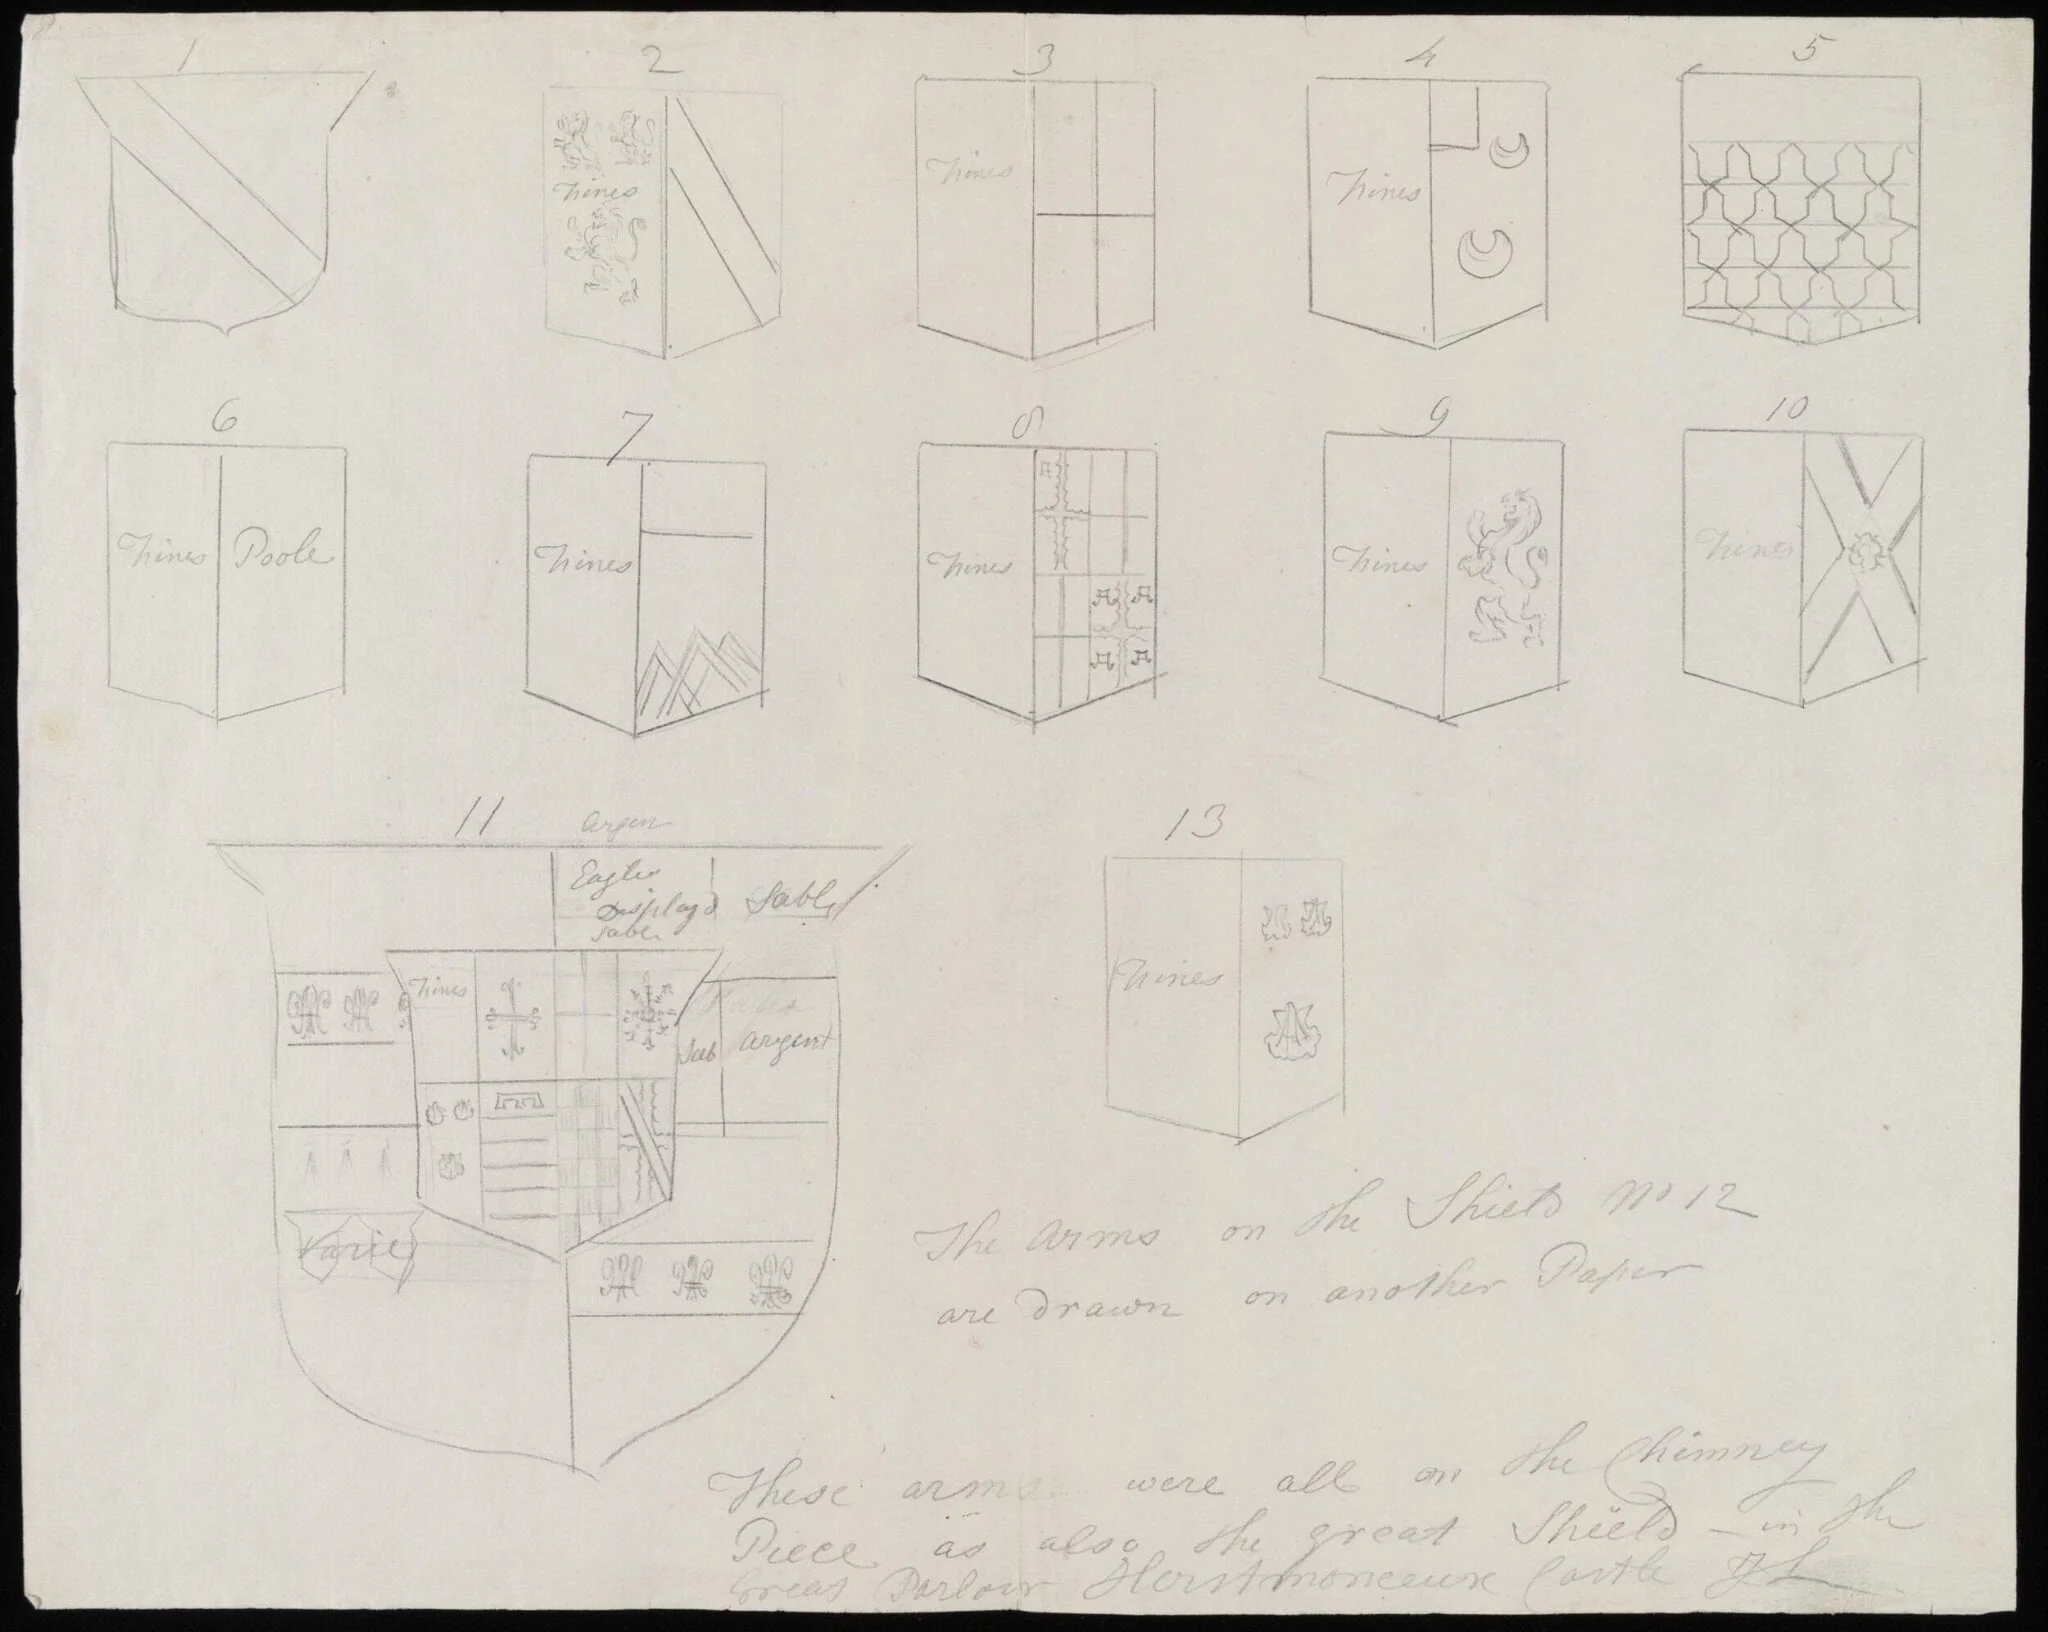 1
2
3
4
5
Fines
Fines
Fines
6
7
8
9
10
Fines Poole
Fines
Fines
Fines
Fines
11
argen
13
Eagles
Displayd
Sable
Sable
Fines
Sab
argent
Fines
Varie
The arms on the Shield No 12
are drawn on another Paper
These arms were all on the Chimney
Piece as also the great Shield – in the
Great Parlour Herstmonceux Castle